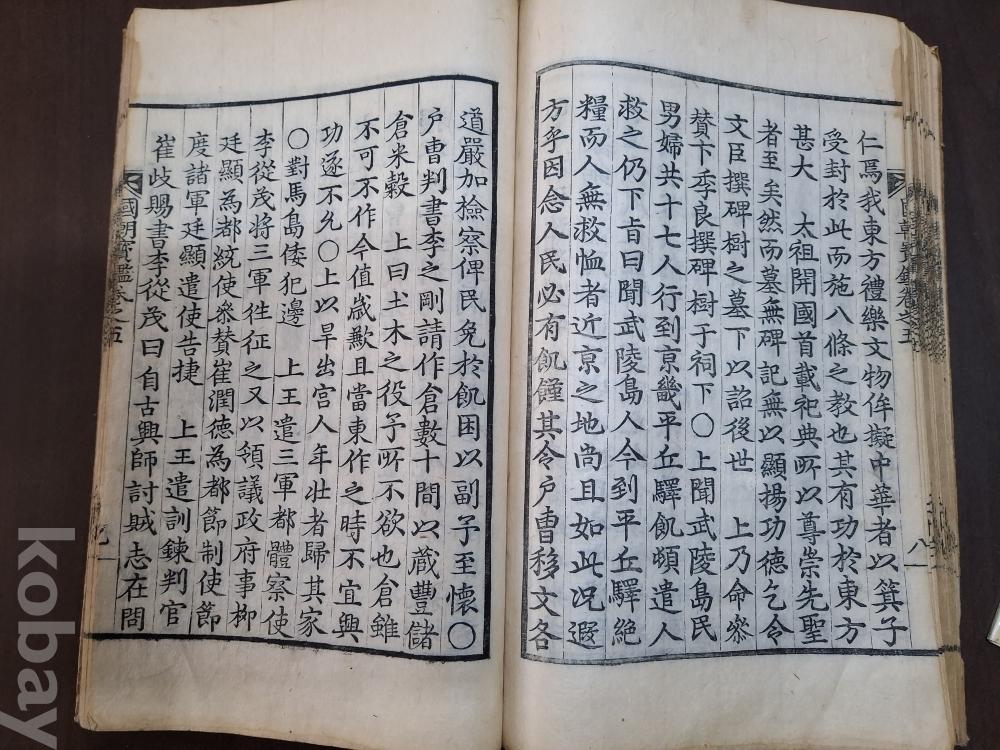 仁焉我東方禮樂文物侔擬中華者以箕子
受封於此而施八條之教也其有功於東方
甚大 太祖開國首載祀典所以尊崇先聖
者至矣然而墓無碑記無以顯揚功德乞令
文臣撰碑樹之墓下以詔後世 上乃命叅
賛卞季良撰碑樹于祠下○上聞武陵島民
男婦共十七人行到京畿平丘驛飢頓遣人
救之仍下旨曰聞武陵島人今到平丘驛絶
糧而人無救恤者近京之地尚且如此况遐
方乎因念人民必有飢饉其令户曹移文各
八
道嚴加撿察俾民免於飢困以副予至懷○
户曹判書李之剛請作倉數十間以蔵豐儲
倉米穀 上曰土木之役予所不欲也倉雖
不可不作今值歳歉且當東作之時不宜興
功遂不允○上以旱出宫人年壮者歸其家
○對馬島倭犯邊 上王遣三軍都體察使
李從茂将三軍徃征之又以領議政府事柳
廷顯為都統使叅賛崔潤德為都節制使節
度諸軍廷顯遣使告捷 上王遣訓鍊判官
崔歧賜書李從茂曰自古興師討賊志在問
國朝寳鑑卷之五
kobay